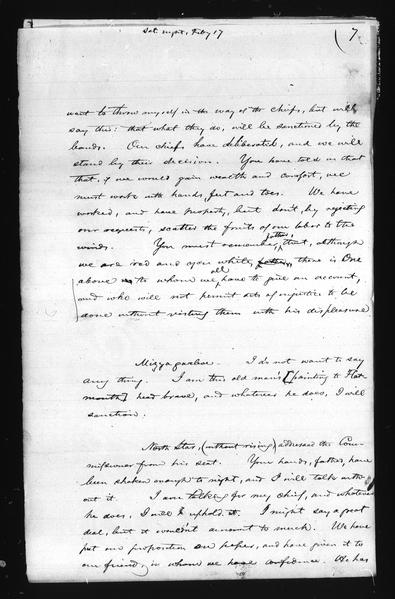 Sat. night, Feby 17
(7
want to throw myself in the way of the chiefs, but will
say this: that what they do, will be sanctioned by the
bands. Our chiefs, have deliberated, and we will
stand by their decision. You have told us that
that, if we would gain wealth and comfort, we
must work with hands, feet and toes. We have
worked, and have property, but don't, by rejecting
our requests, scatter the fruits of our labor to the
winds. You must remember, father, that, although
we are red and you white, father, there is One
above to whom we all have to give an account,
and who will not permit acts of injustice to be
done without visiting them with his displeasure.
I do not want to say
any thing. I am this old man's [pointing to Flat-
mouth] head brave, and whatever he does, I will
sanction.
North Star, (without rising) addressed the Com-
missioner from his seat. Your hands, father, have
been shaken enough to night, and I will talk with-
out it. I am talking for my chief, and whatever
he does, I will uphold it. I might say a great
deal, but it wouldn't amount to much. We have
put our proposition on paper, and have given it to
our friend, in whom we have confidence. He has